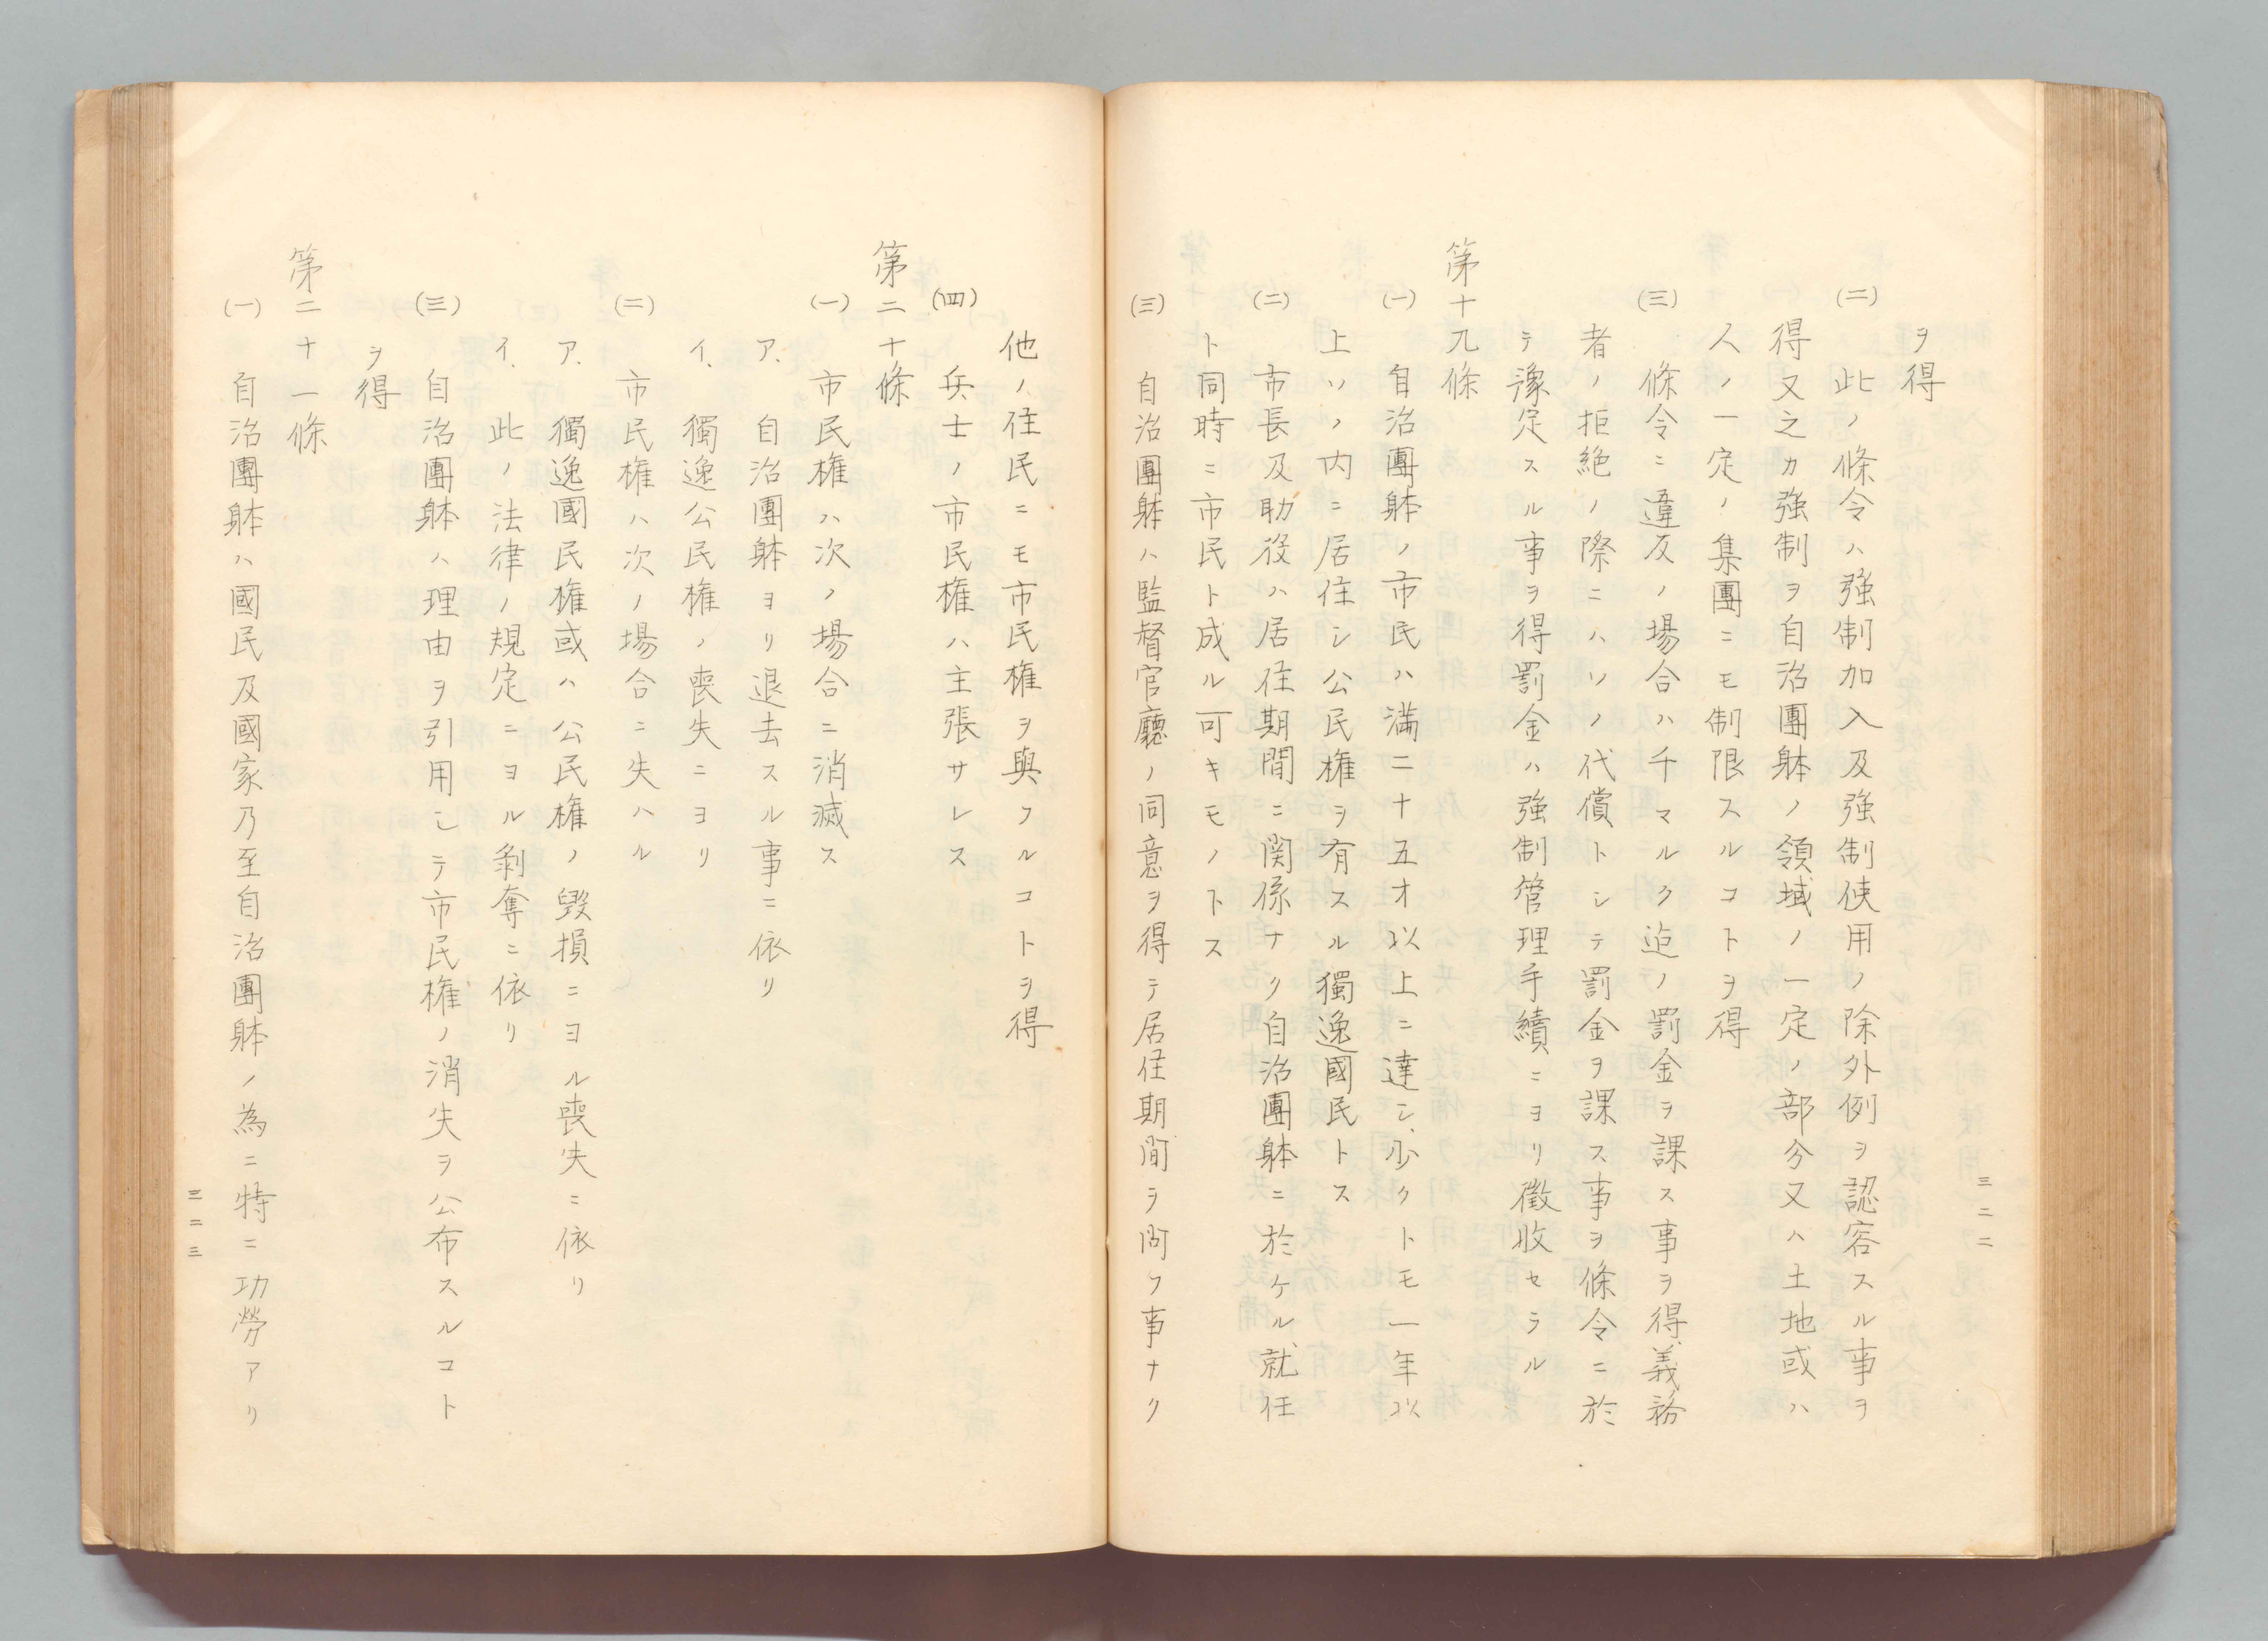 ヲ得
(二) 此ノ條令ハ強制加入及強制使用ノ除外例ヲ認容スル事ヲ
得又之カ強制ヲ自治團躰ノ領域ノ一定ノ部分又ハ土地或ハ
人ノ一定ノ集團ニモ制限スルコトヲ得
(三) 條令ニ違反ノ場合ハ千マルク迠ノ罰金ヲ課ス事ヲ得、義務
者ノ拒絶ノ際ニハソノ代償トシテ罰金ヲ課ス事ヲ條令ニ於
テ豫定スル事ヲ得罰金ハ強制管理手續ニヨリ徴收セラル
第十九條
(一) 自治團躰ノ市民ハ満二十五才以上ニ達シ、少クトモ一年以
上ソノ内ニ居住シ公民権ヲ有スル獨逸國民トス
(二) 市長及助役ハ居住期間ニ関係ナク自治團躰ニ於ケル就任
ト同時ニ市民ト成ル可キモノトス
(三) 自治團躰ハ監督官廳ノ同意ヲ得テ居住期間ラ問フ事ナク
三二二
他ノ住民ニモ市民権ヲ與フルコトヲ得
(四) 兵士ノ市民権ハ主張サレス
第二十條
(一) 市民権ハ次ノ場合ニ消滅ス
ア、自治團躰ヨリ退去スル事ニ依リ
イ、獨逸公民権ノ喪失ニヨリ
(二) 市民権ハ次ノ場合ニ失ハル
ア、獨逸國民権或ハ公民権ノ毀損ニヨル喪失ニ依リ
イ、此ノ法律ノ規定ニヨル剥奪ニ依リ
(三) 自治團躰ハ理由ヲ引用シテ市民権ノ消失ヲ公布スルコト
ヲ得
第二十一條
(一) 自治團躰ハ國民及國家乃至自治團躰ノ為ニ特ニ功勞アリ
三二三